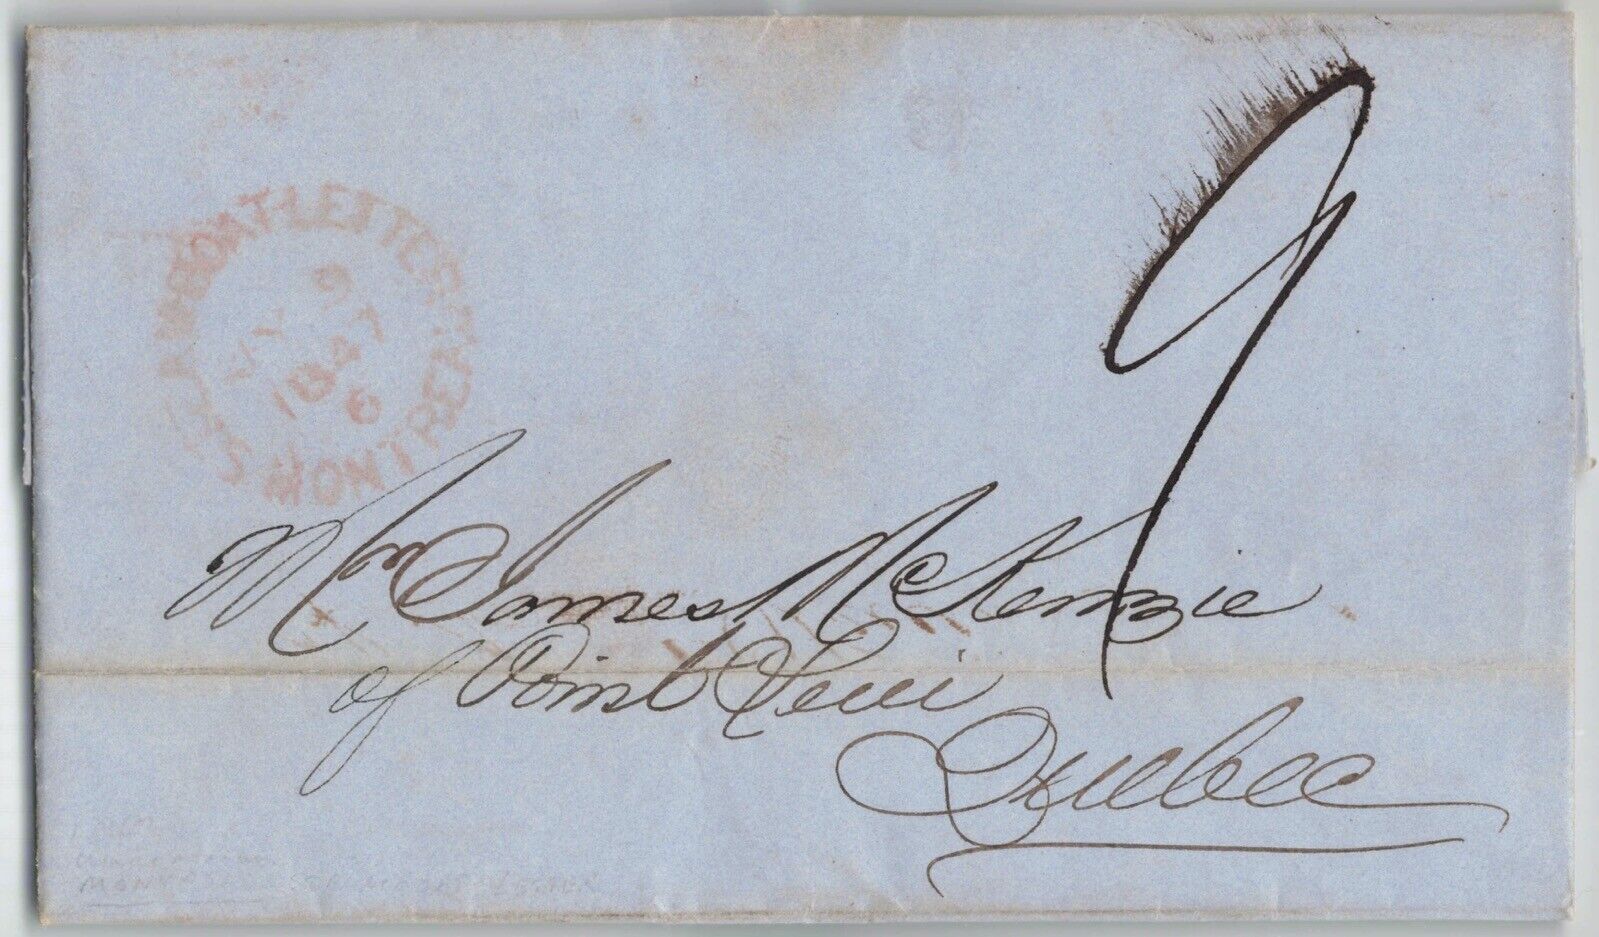 STEAMBOAT-LETTER
MONTREAL
9
1847
6
9
Mr James McKenzie
of Point Levi
Quebec